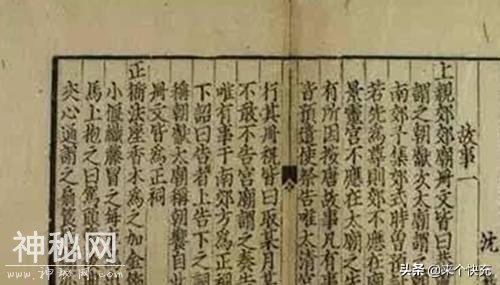 故事一
沈
上親郊郊廟冊文皆曰
謂之朝獻次太廟謂
南郊予集郊式時曾
若先為尊則郊不應在
景靈宮不應在太廟之
有所因按唐故事凡有
皆預遣使祭告唯太清
行其冊祝皆曰取某月
不敢不告宮廟謂之奏
唯有事于南郊方為正
下詔曰告者上告下之詞
稱朝獻太廟稱朝饗自
冊文皆為正祠
正衙法座香木為之加金
小偃織藤冒之每
馬上抱之曰駕頭
夾心通謂之扇筤
神秘网
WWW.SHENMIW.COM
头条 @来个快充